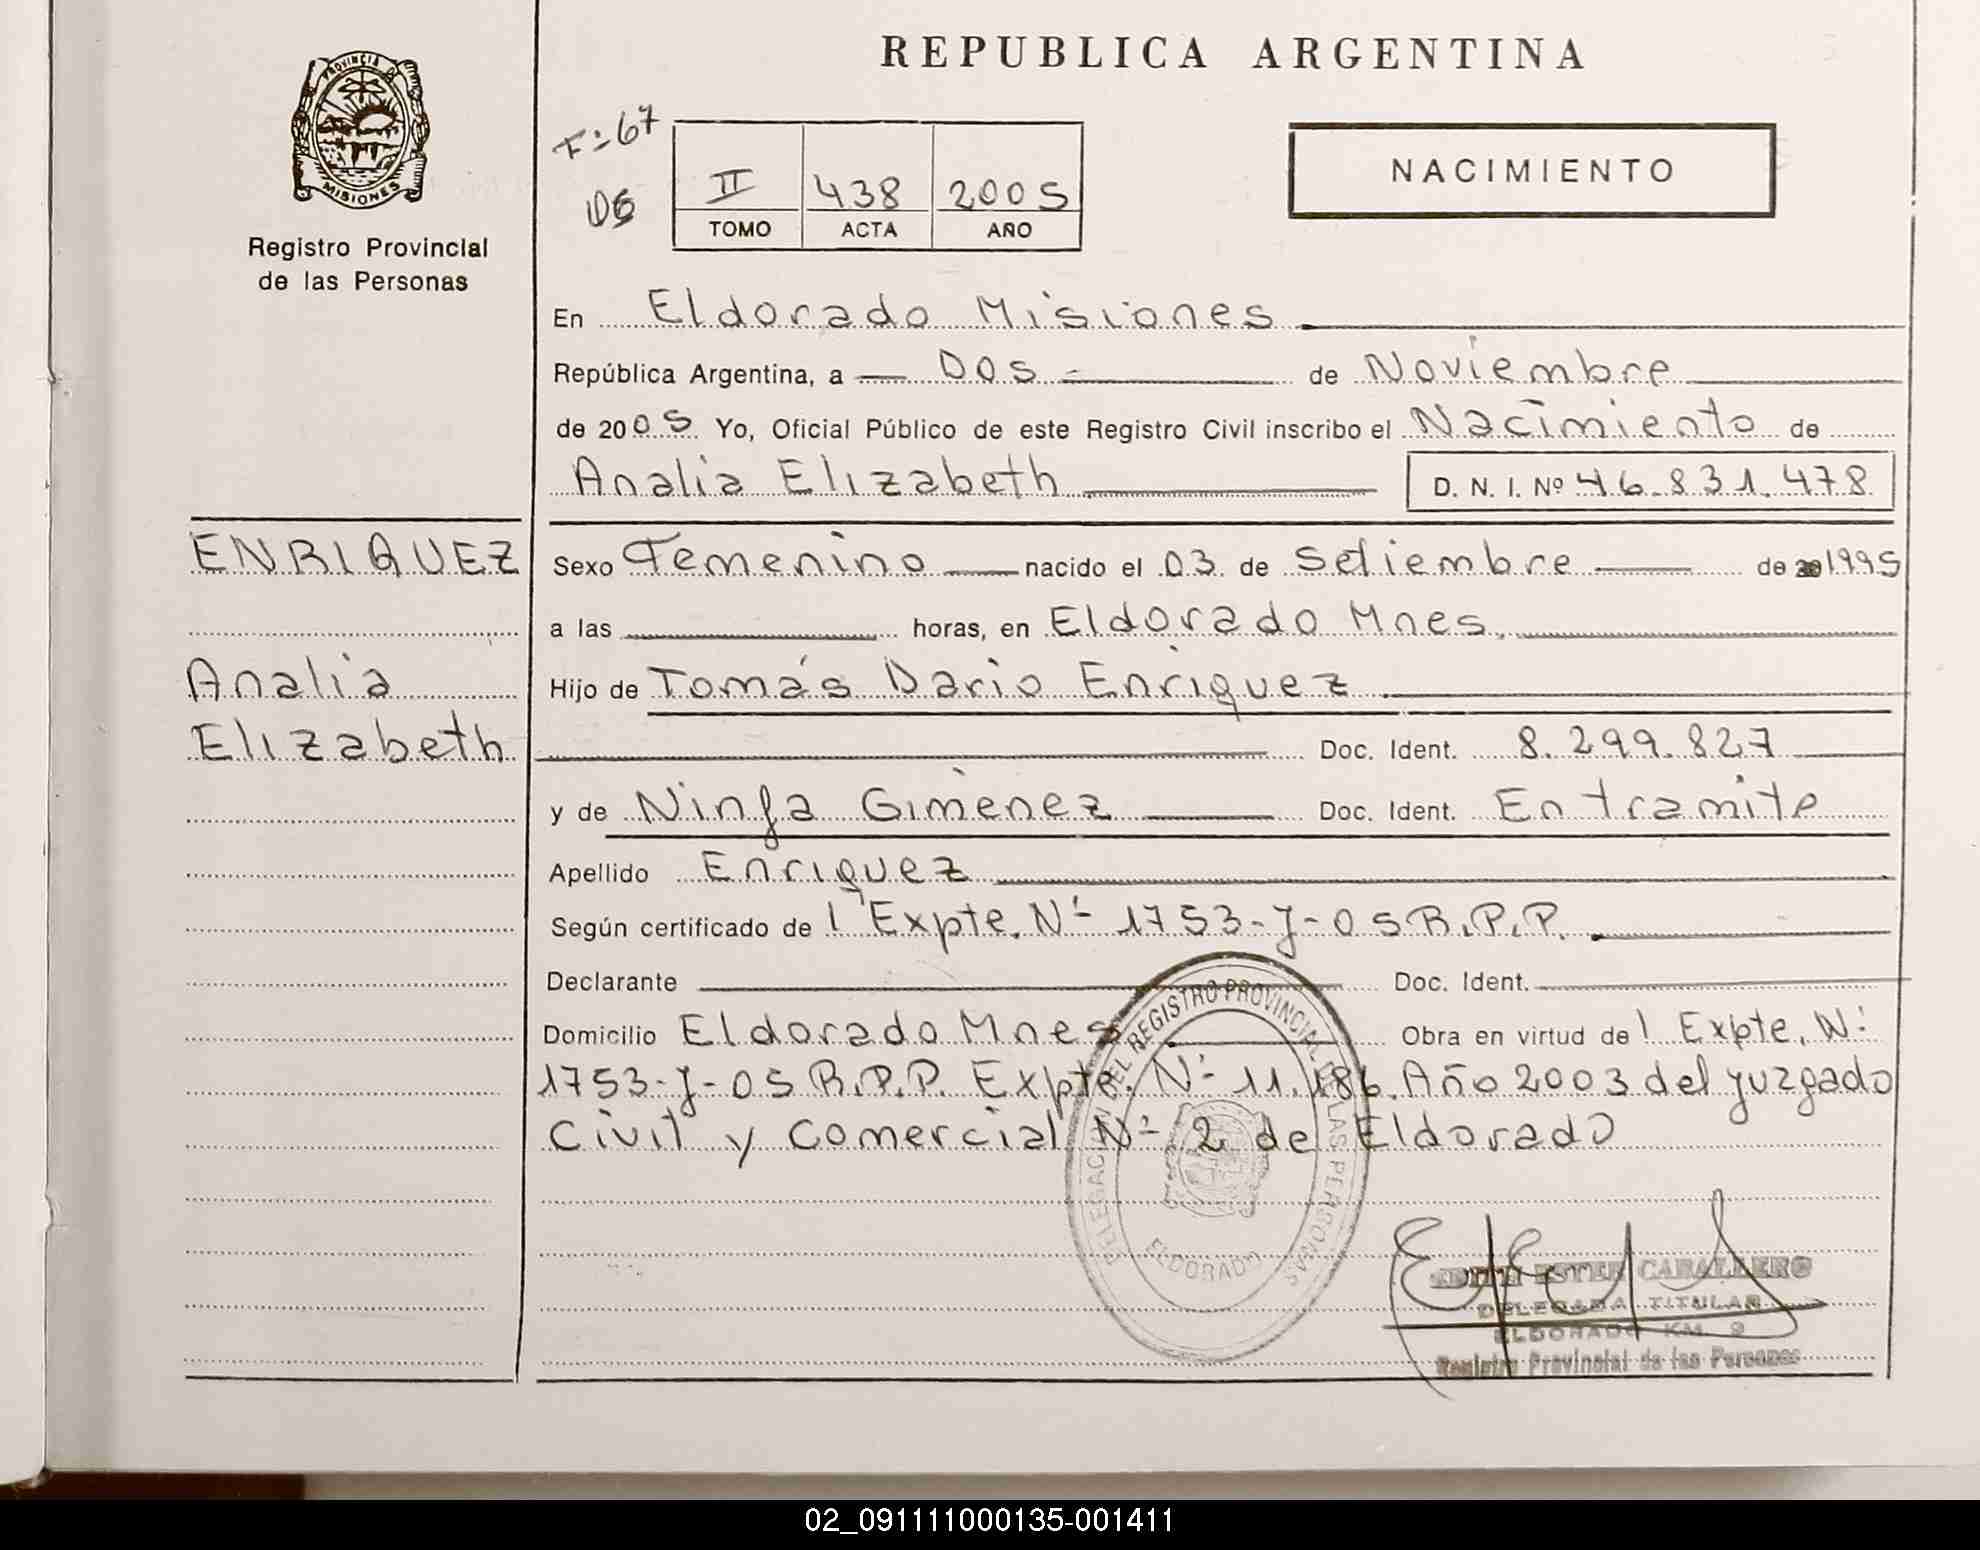 REPUBLICA ARGENTINA
PROVINCIA D
MISIONES
Registro Provincial
de las Personas
F=67
II 438 2005
TOMO ACTA AÑO
NACIMIENTO
En Eldorado Misiones
República Argentina, a Dos de Noviembre
de 2005 Yo, Oficial Público de este Registro Civil inscribo el Nacimiento de
Analia Elizabeth D. N. I. Nº 46.831.478
ENRIQUEZ
Analia
Elizabeth
Sexo Femenino nacido el 03 de Setiembre de 1995
a las horas, en Eldorado Mnes.
Hijo de Tomás Dario Enriquez
Doc. Ident. 8.299.827
y de Ninfa Gimenez Doc. Ident. En tramite
Apellido Enriquez
Según certificado de Expte. Nº 1753-J-05 R.P.P.
Declarante Doc. Ident.
Domicilio Eldorado Mnes Obra en virtud de Expte. Nº
1753-J-05 R.P.P. Expte. Nº 11.186 Año 2003 del juzgado
Civil y Comercial Nº 2 de Eldorado
DELEGACION DEL REGISTRO PROVINCIAL DE LAS PERSONAS
ELDORADO
EDITH ESTER CABALLERO
DELEGADA TITULAR
ELDORADO KM. 9
Registro Provincial de las Personas
02_091111000135-001411